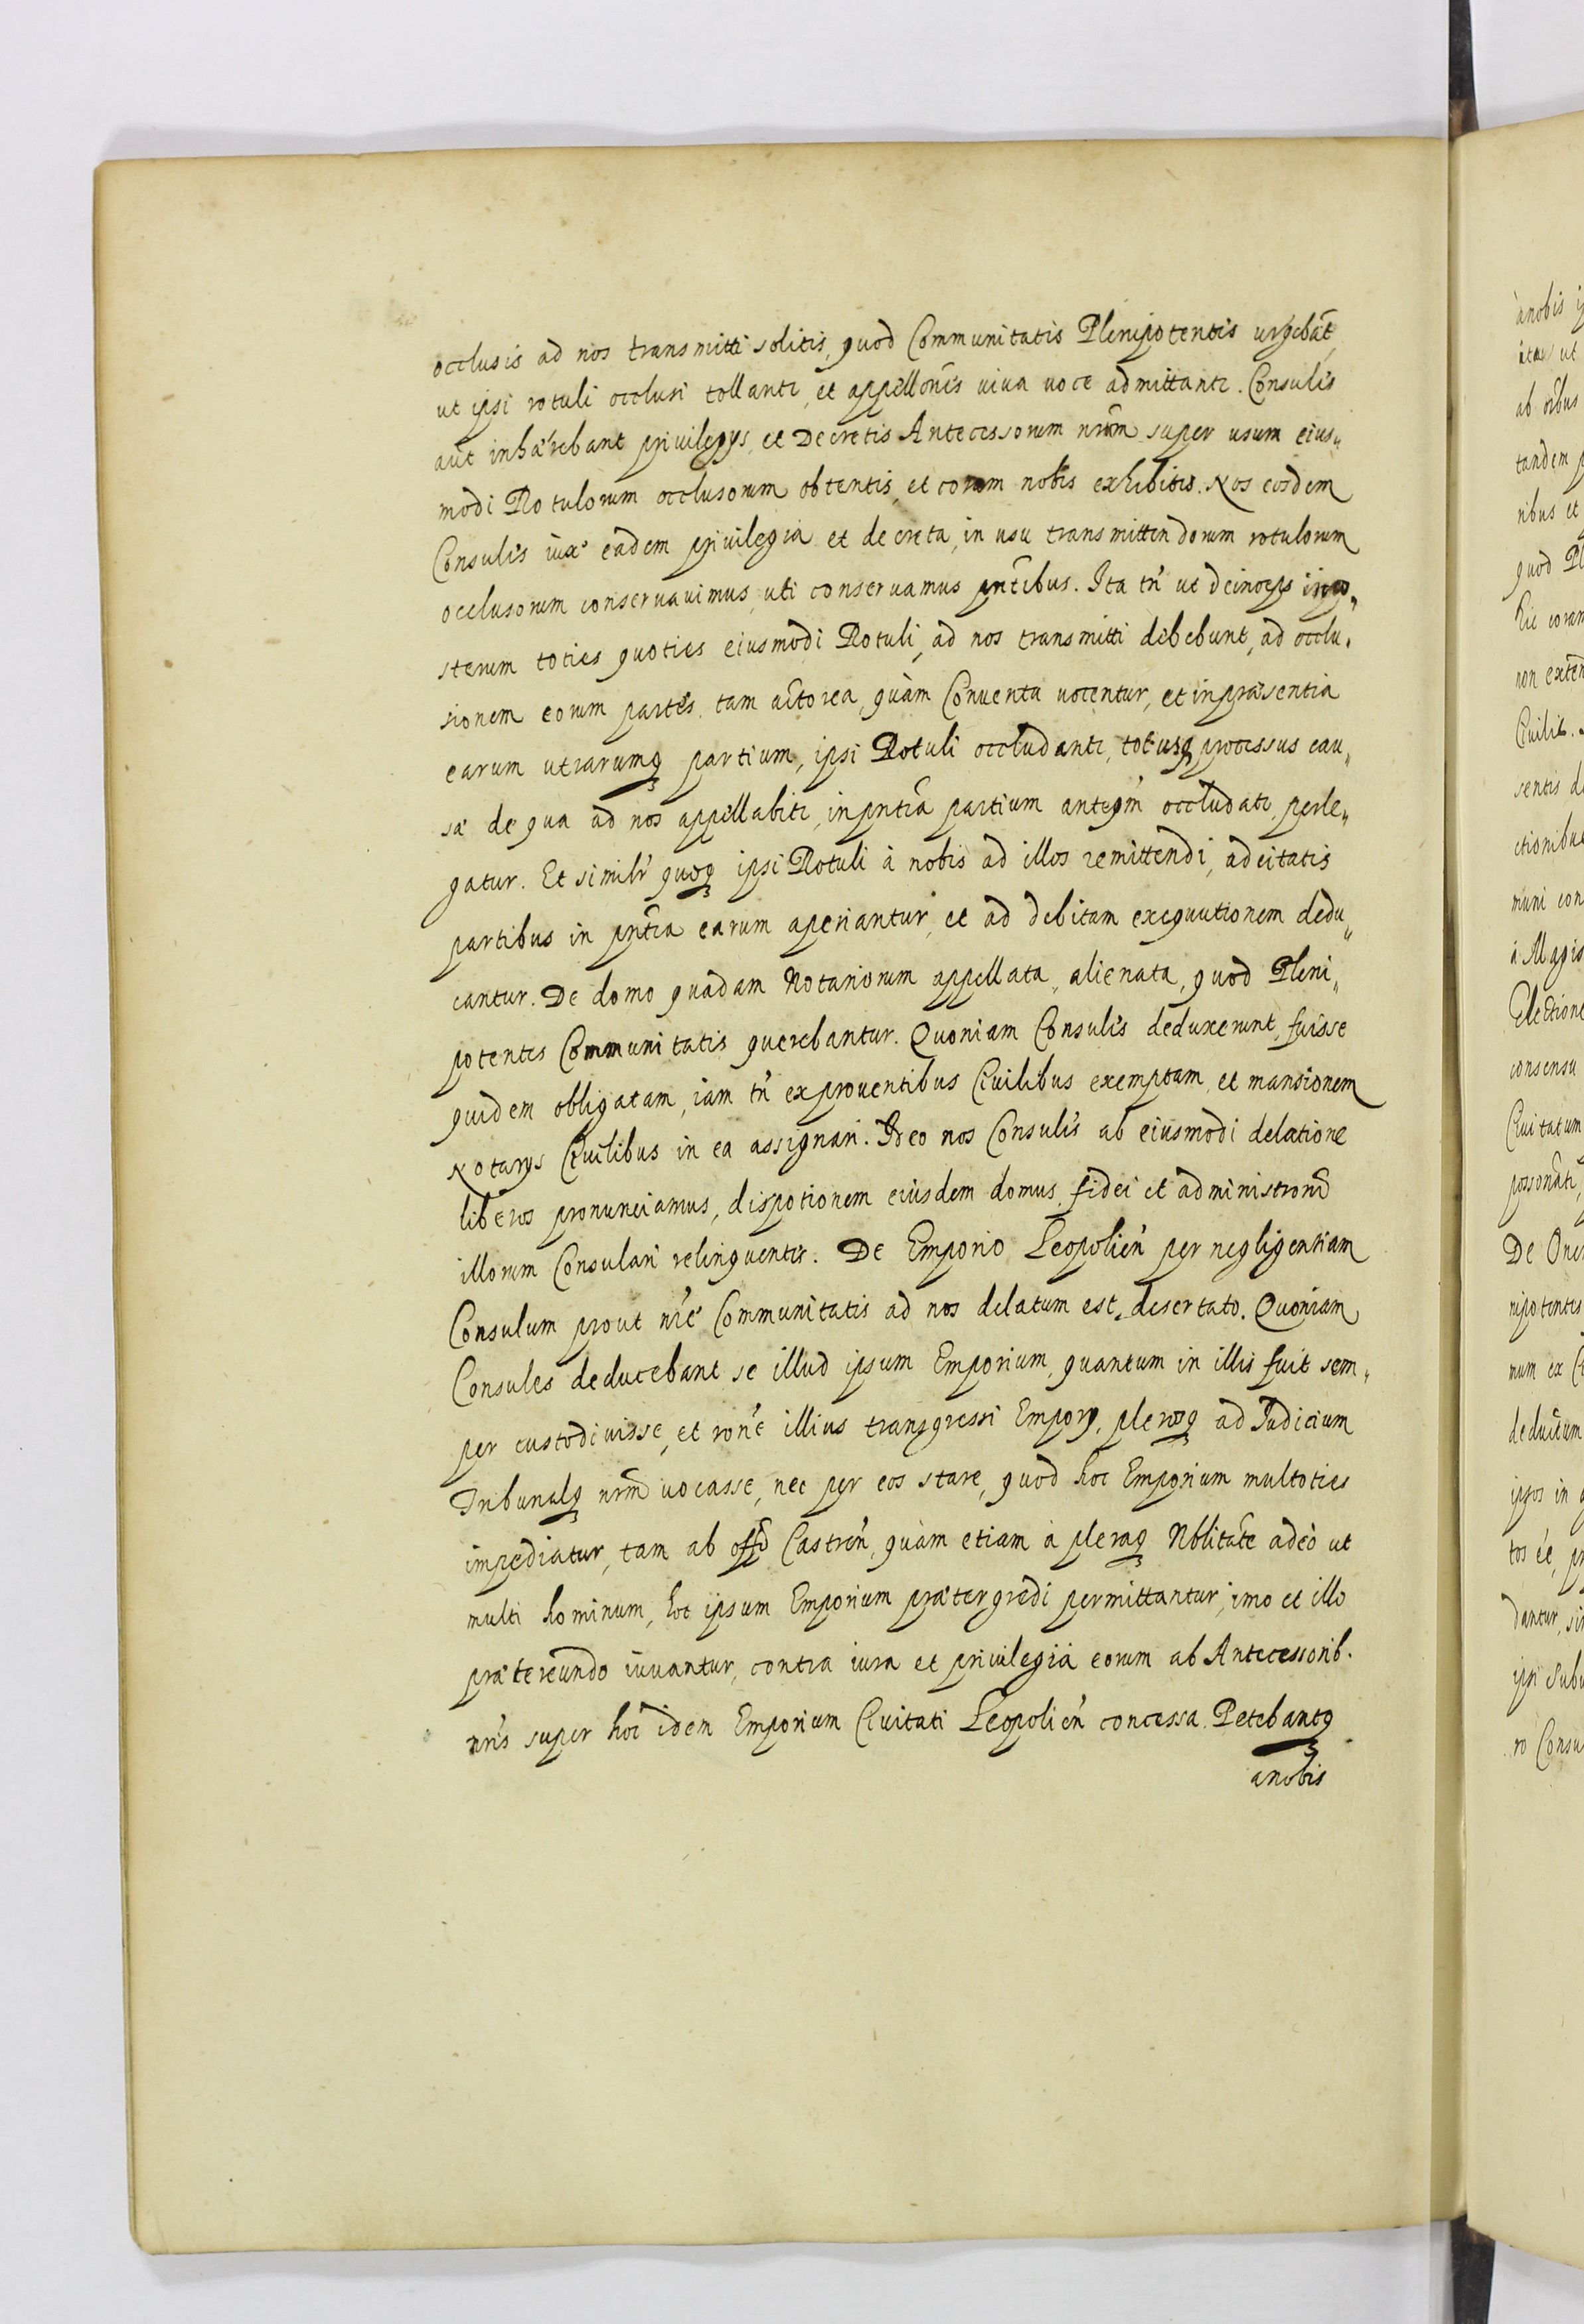 occlusis ad nos transmitti solitis, quod Communitatis Plenipotentes urgebāt,
ut ipsi rotuli occlusi tollantr, et appellonẽs viva voce admittantr. Consulẽs
aũt inhærebant privilegys, et Decretis Antecessorum nrõm super usum eius„
modi Rotulorum occlusorum obtentis, et coram nobis exhibitis. Nos eosdem
Consulẽs iuxª eadem privilegia et decreta, in usu transmittendorum rotulorum
occlusorum conservavimus, uti conservamus pñtibus. Ita tñ ut deinceps inpo„
sterum toties quoties eiusmodi Rotuli, ad nos transmitti debebunt, ad occlu„
sionem eorum partẽs, tam actorea, quàm Conventa vocentur, et in præsentia
earum utrarumq3 partium, ipsi Rotuli occludantr, totusq3 processus cau„
sæ de qua ad nos appellabitr, in pñtĩa partium anteqm̃ occludatr, perle„
gatur. Et similr̃ quoq3 ipsi Rotuli à nobis ad illos remittendi, adcitatis
partibus in pñtĩa earum aperiantur, et ad debitam exequutionem dedu„
cantur. De domo quadam Notariorum appellata, alienata, quod Pleni„
potentes Communitatis querebantur. Quoniam Consulẽs deduxerunt, fuisse
quidem obligatam, iam tñ ex proventibus Civilibus exemptam, et mansionem
Notarys Civilibus in ea assignari. Ideo nos Consulẽs ab eiusmodi delatione
liberos pronunciamus, dispotionem eiusdem domus, fidei et administrom̃
illorum Consulari relinquentes. De Emporio Leopolieñ per negligentiam
Consulum prout nr̃æ Communitatis ad nos delatum est, desertato. Quoniam
Consules deducebant se illud ipsum Emporium, quantum in illis fuit sem„
per custodivisse, et ronẽ illius transgressi Empory, plerosq3 ad Iudicium
Tribunalq3 nrm̃ vocasse, nec per eos stare, quod hoc Emporium multoties
impediatur, tam ab offõ Castreñ, quàm etiam à pleraq3 Nblitate adeò ut
multi hominum, hoc ipsum Emporium prætergredi permittantur, imo et illo
prætereundo iuvantur, contra iura et privilegia eorum ab Antecessorib.
nr̃is super hoc idem Emporium Civitati Leopolieñ concessa. Petebantq3
a nobis